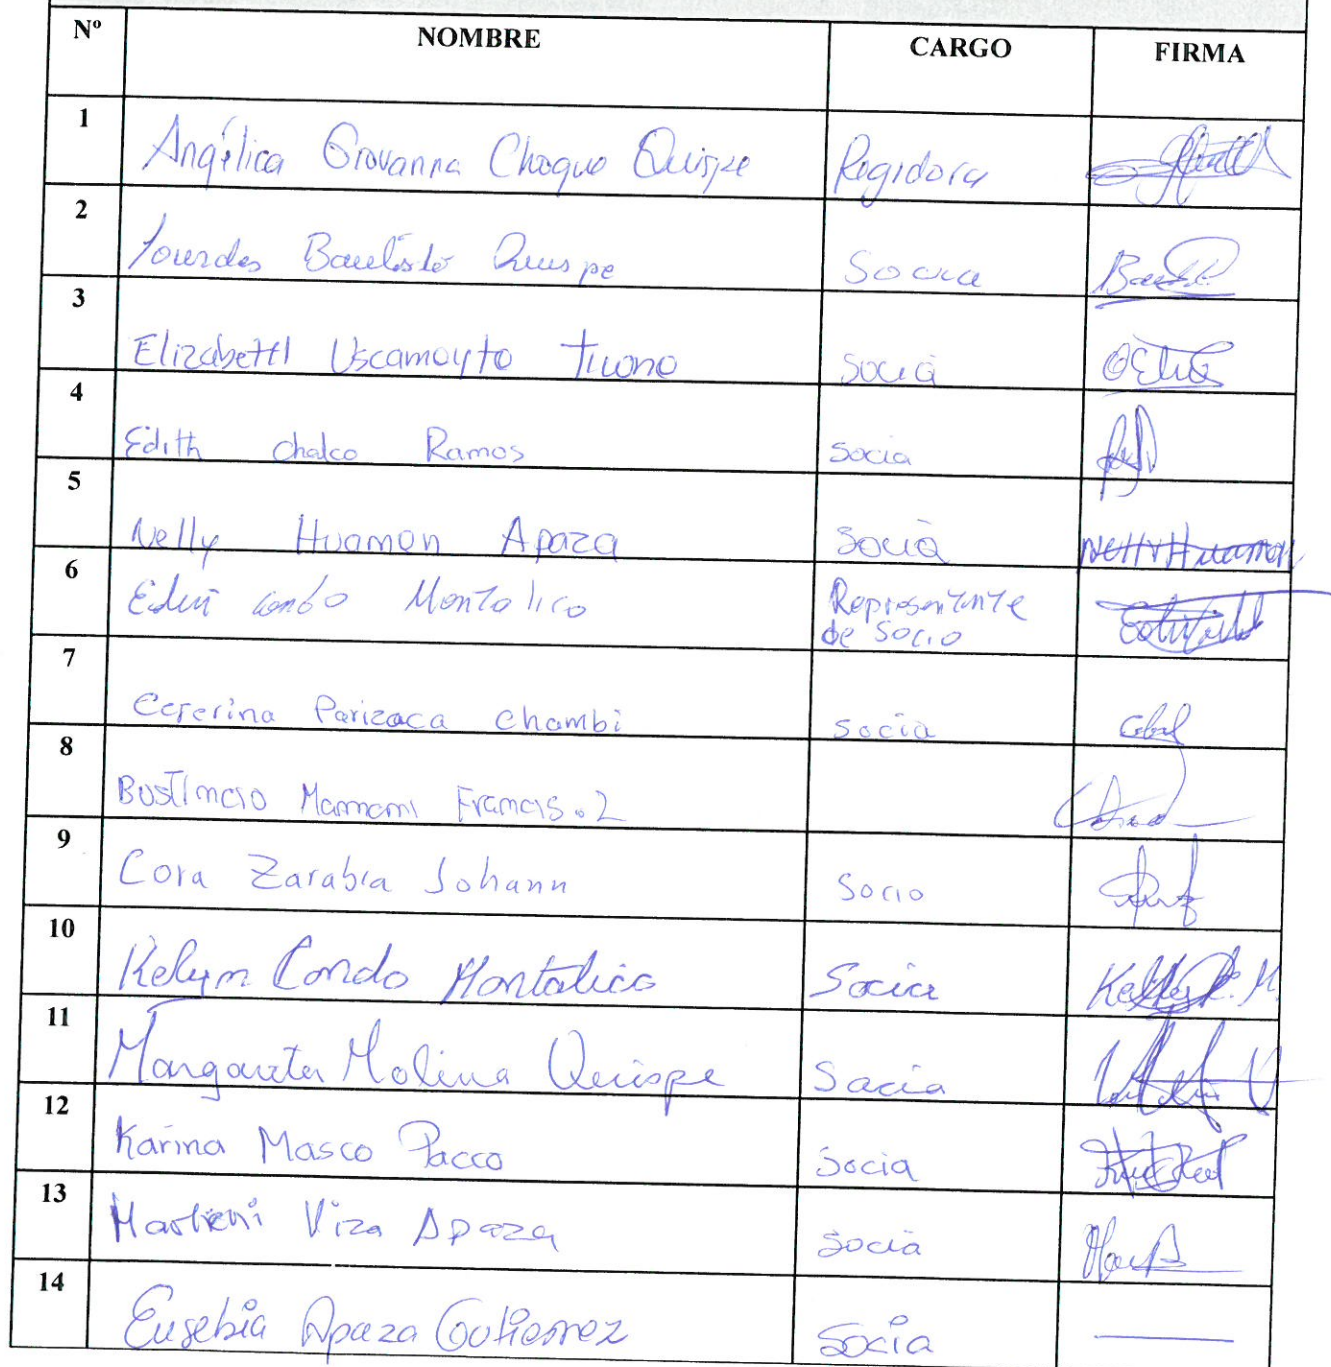 Nº NOMBRE CARGO FIRMA
1 Angélica Giovanna Choque Quispe Regidora
2 Lourdes Bautista Quispe Socia
3 Elizabeth Uscamayto Ticona Socia
4 Edith Chalco Ramos Socia
5 Nelly Huaman Apaza Socia Nelly Huaman
6 Condo Montalico Representante
de Socio
7 Ceferina Parizaca Chambi Socia
8 Mamani
9 Cora Zarabia Johann Socio
10 Kelym Condo Montalico Socia
11 Margarita Molina Quispe Socia
12 Karina Masco Pacco Socia
13 Marleni Viza Apaza Socia
14 Eusebia Apaza Gutierrez Socia